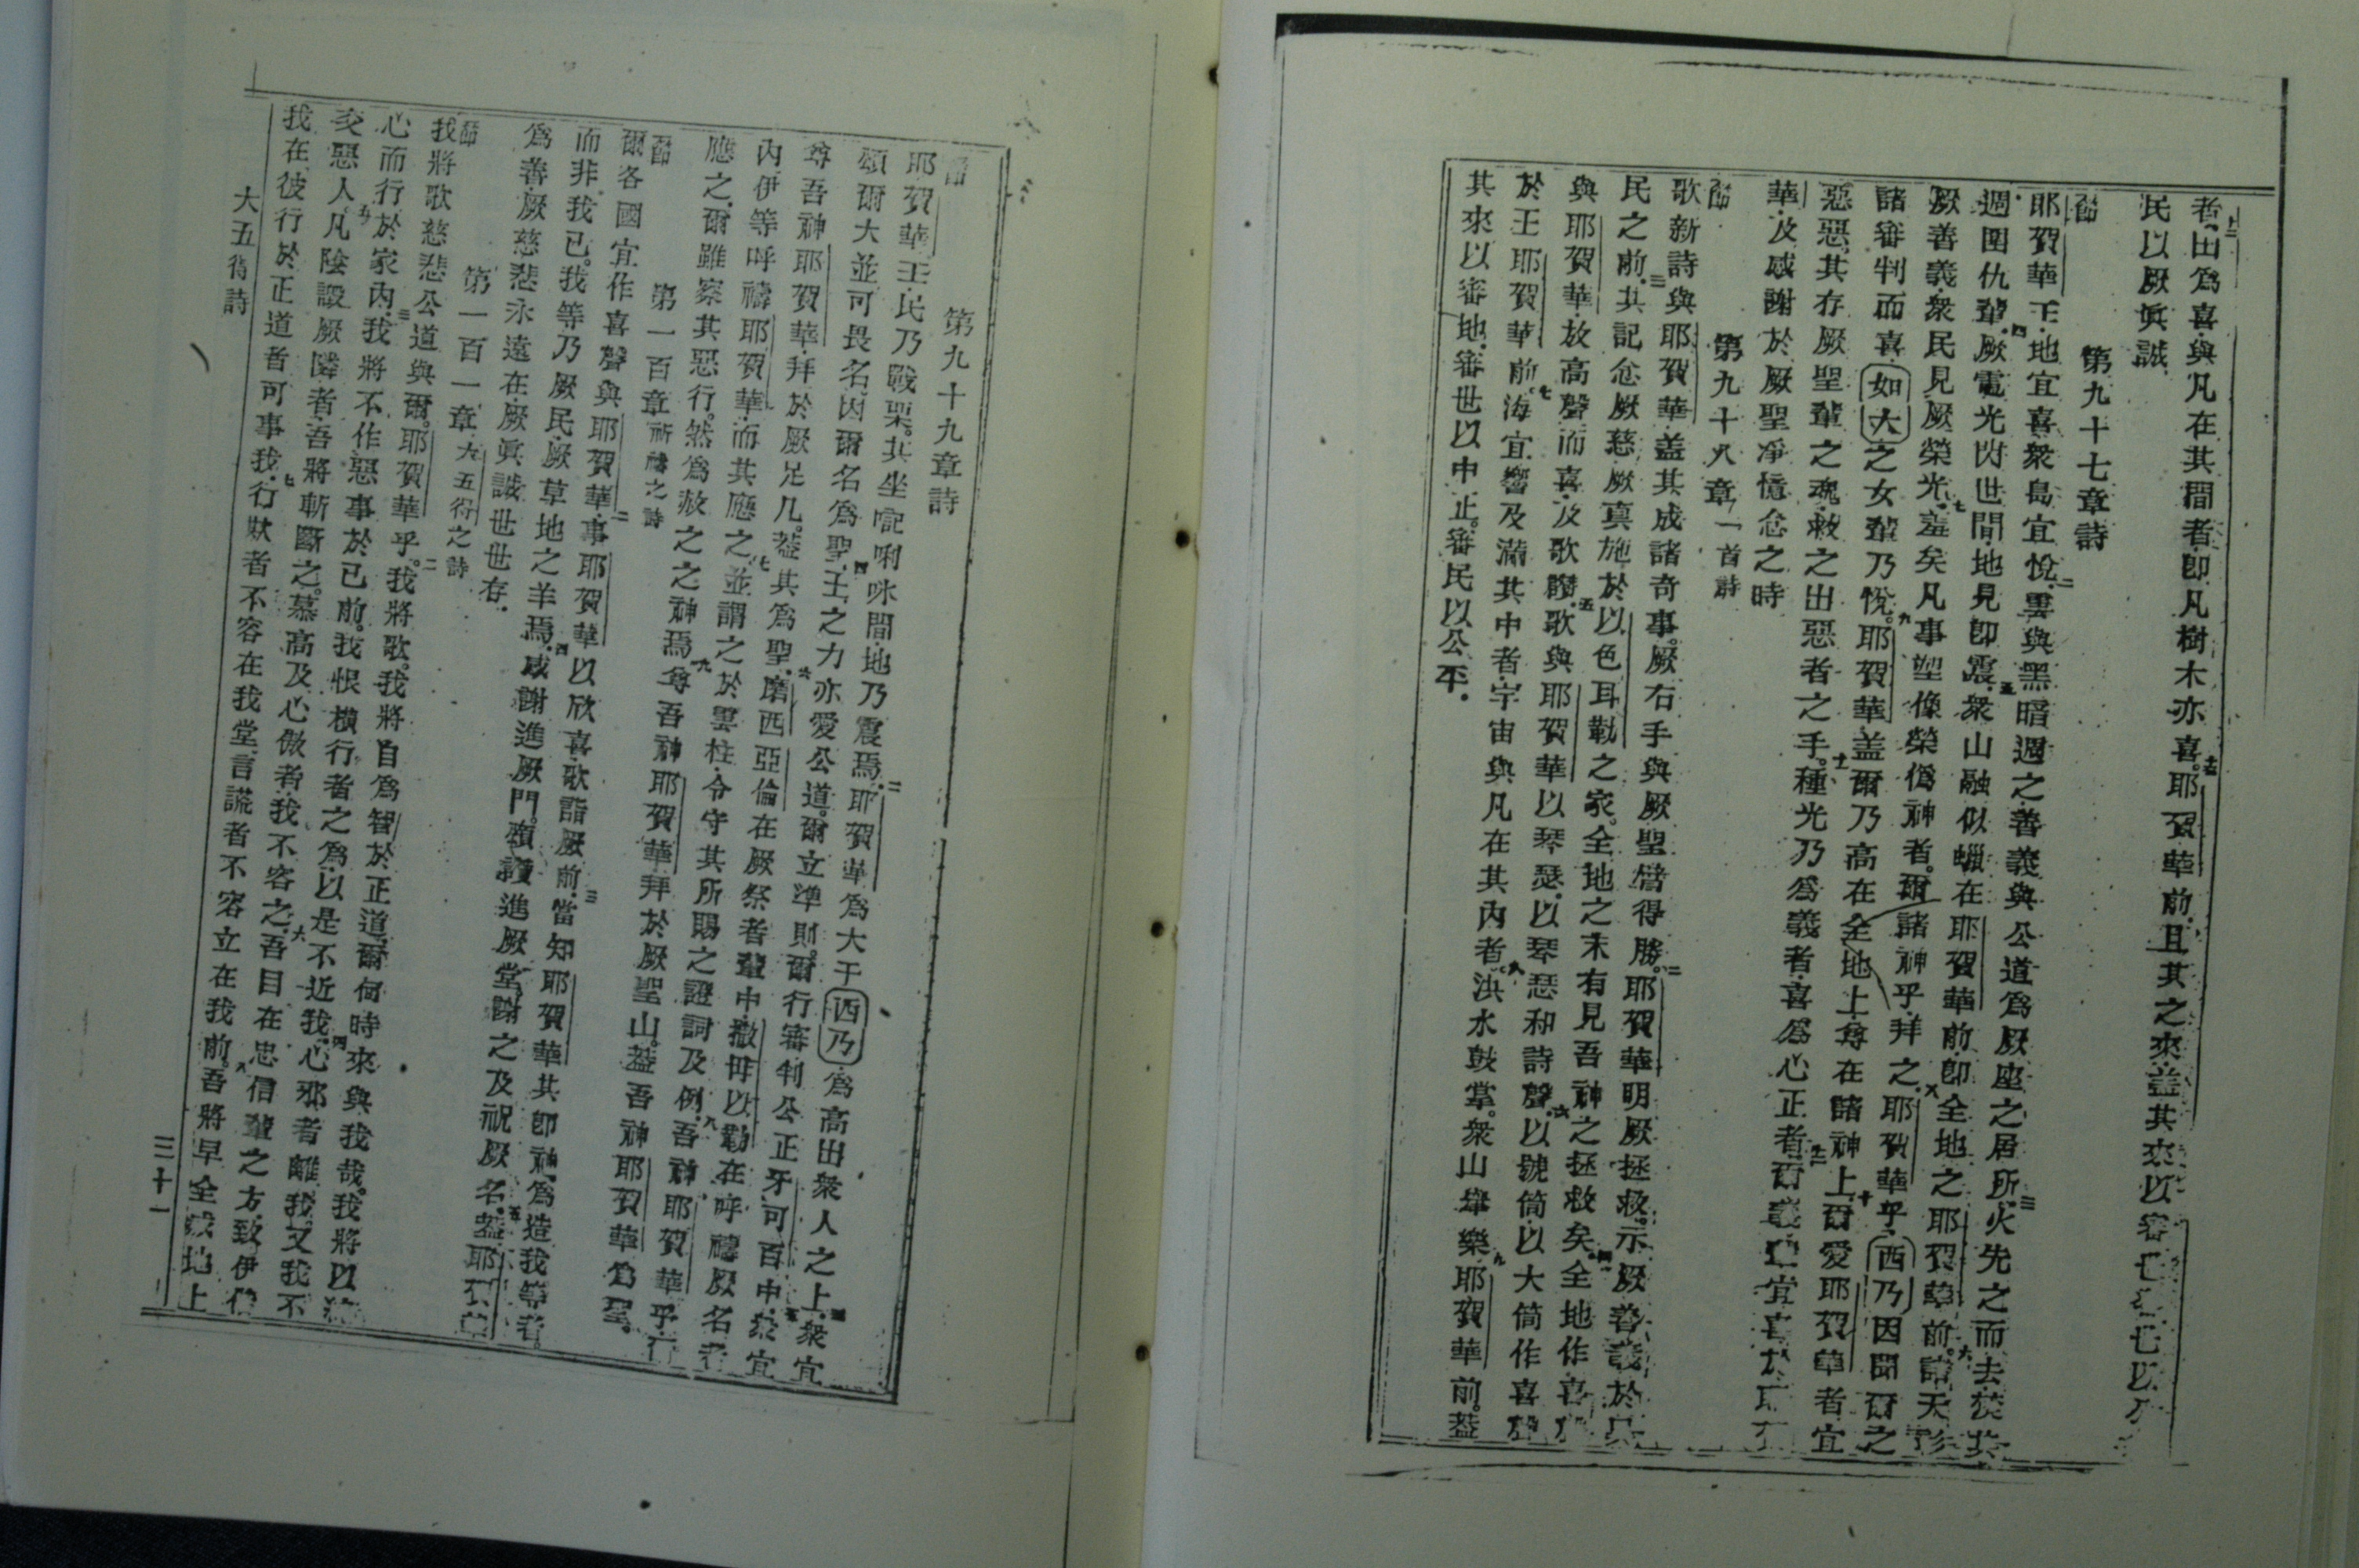 者田為喜與凡在其間者即凡樹木亦喜耶賀華前且其之來蓋其來以審
民以厥眞誠
第九十七章詩
耶賀華王地宜喜衆島宜悅雲與黑暗週之善義與公道為厥座之居所火先之而去焚其
週圍仇輩厥電光閃世間地見即震衆山融似蠟在耶賀華前即全地之耶賀華前諸天
厥善義衆民見厥榮光羞矣凡事塑像榮偽神者爾諸神乎拜之耶賀華乎西乃因聞爾之
諸審判而喜如大之女輩乃悅耶賀華蓋爾乃高在全地上尊在諸神上爾愛耶賀華者宜
惡惡其存厥聖輩之魂救之出惡者之手種光乃為義者喜為心正者爾義
華及感謝於厥聖凈憶念之時
第九十八章一首詩
歌新詩與耶賀華蓋其成諸奇事厥右手與厥聖臂得勝耶賀華明厥拯救示厥善義於
民之前其記念厥慈厥真施於以色耳勒之家全地之末有見吾神之拯救矣全地作喜
與耶賀華放高聲而喜及歌讚歌與耶賀華以琴瑟以琴瑟和詩聲以號筒以大筒作喜聲
於王耶賀華前海宜響及滿其中者宇宙與凡在其內者洪水鼓掌衆山舉樂耶賀華前蓋
其來以審地審世以中正審民以公平
第九十九章詩
耶賀華王民乃戰栗其坐𠸄唎咪間地乃震焉耶賀華為大于西乃為高出衆人之上衆宜
頌爾大並可畏名因爾名為聖王之力亦愛公道爾立準則爾行審判公正牙可百中衆宜
尊吾神耶賀華拜於厥足几蓋其為聖磨西亞倫在厥祭者輩中撒母以勒在呼禱厥名者
內伊等呼禱耶賀華而其應之並謂之於雲柱令守其所賜之證詞及例吾神耶賀華乎行
應之爾雖察其惡行然為赦之之神焉尊吾神耶賀華拜於厥聖山蓋吾神耶賀華為聖
第一百章祈禱之詩
爾各國宜作喜聲與耶賀華事耶賀華以欣喜歌詣厥前當知耶賀華其即神為造我等者
而非我已我等乃厥民厥草地之羊焉感謝進厥門頌讚進厥堂謝之及祝厥名蓋耶賀華
為善厥慈悲永遠在厥眞誠世世存
第一百一章大五得之詩
我將歌慈悲公道與爾耶賀華乎我將歌我將自為智於正道爾何時來與我哉我將以
心而行於家內我將不作惡事於己前我恨橫行者之為以是不近我心邪者離我又我不
交惡人凡陰譭厥隣者吾將斬斷之慕高及心傲者我不容之吾目在忠信輩之方致伊
我在彼行於正道者可事我行欺者不容在我堂言謊者不容立在我前吾將早全滅地上
大五得詩
三十一